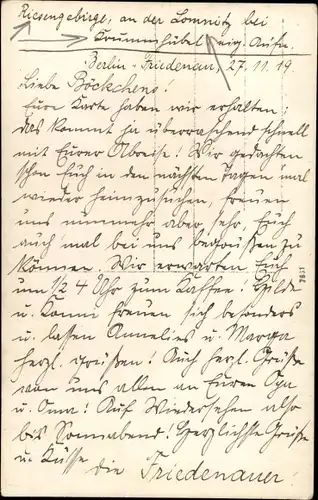 Riesengebirge, an der Lomnitz bei
Krummhübel eig. Aufn.
Berlin-Friedenau, 27.11.19.
Liebe Böckchens!
Eure Karte haben wir erhalten;
das kommt ja überraschend schnell
mit Eurer Abreise! Wir gedachten
schon Euch in den nächsten Tagen mal
wieder heimzusuchen, freuen
uns nunmehr aber sehr, Euch
auch mal bei uns begrüßen zu
können. Wir erwarten Euch
um 1/2 4 Uhr zum Kaffee! Hilde
u. Konni freuen sich besonders
u. lassen Annelies u. Marga
herzl. grüßen! Auch herzl. Grüße
von uns allen an Euren Opa
u. Oma! Auf Wiedersehen also
bis Sonnabend! Herzlichste Grüße
u. Küsse
die Friedenauer!
7857